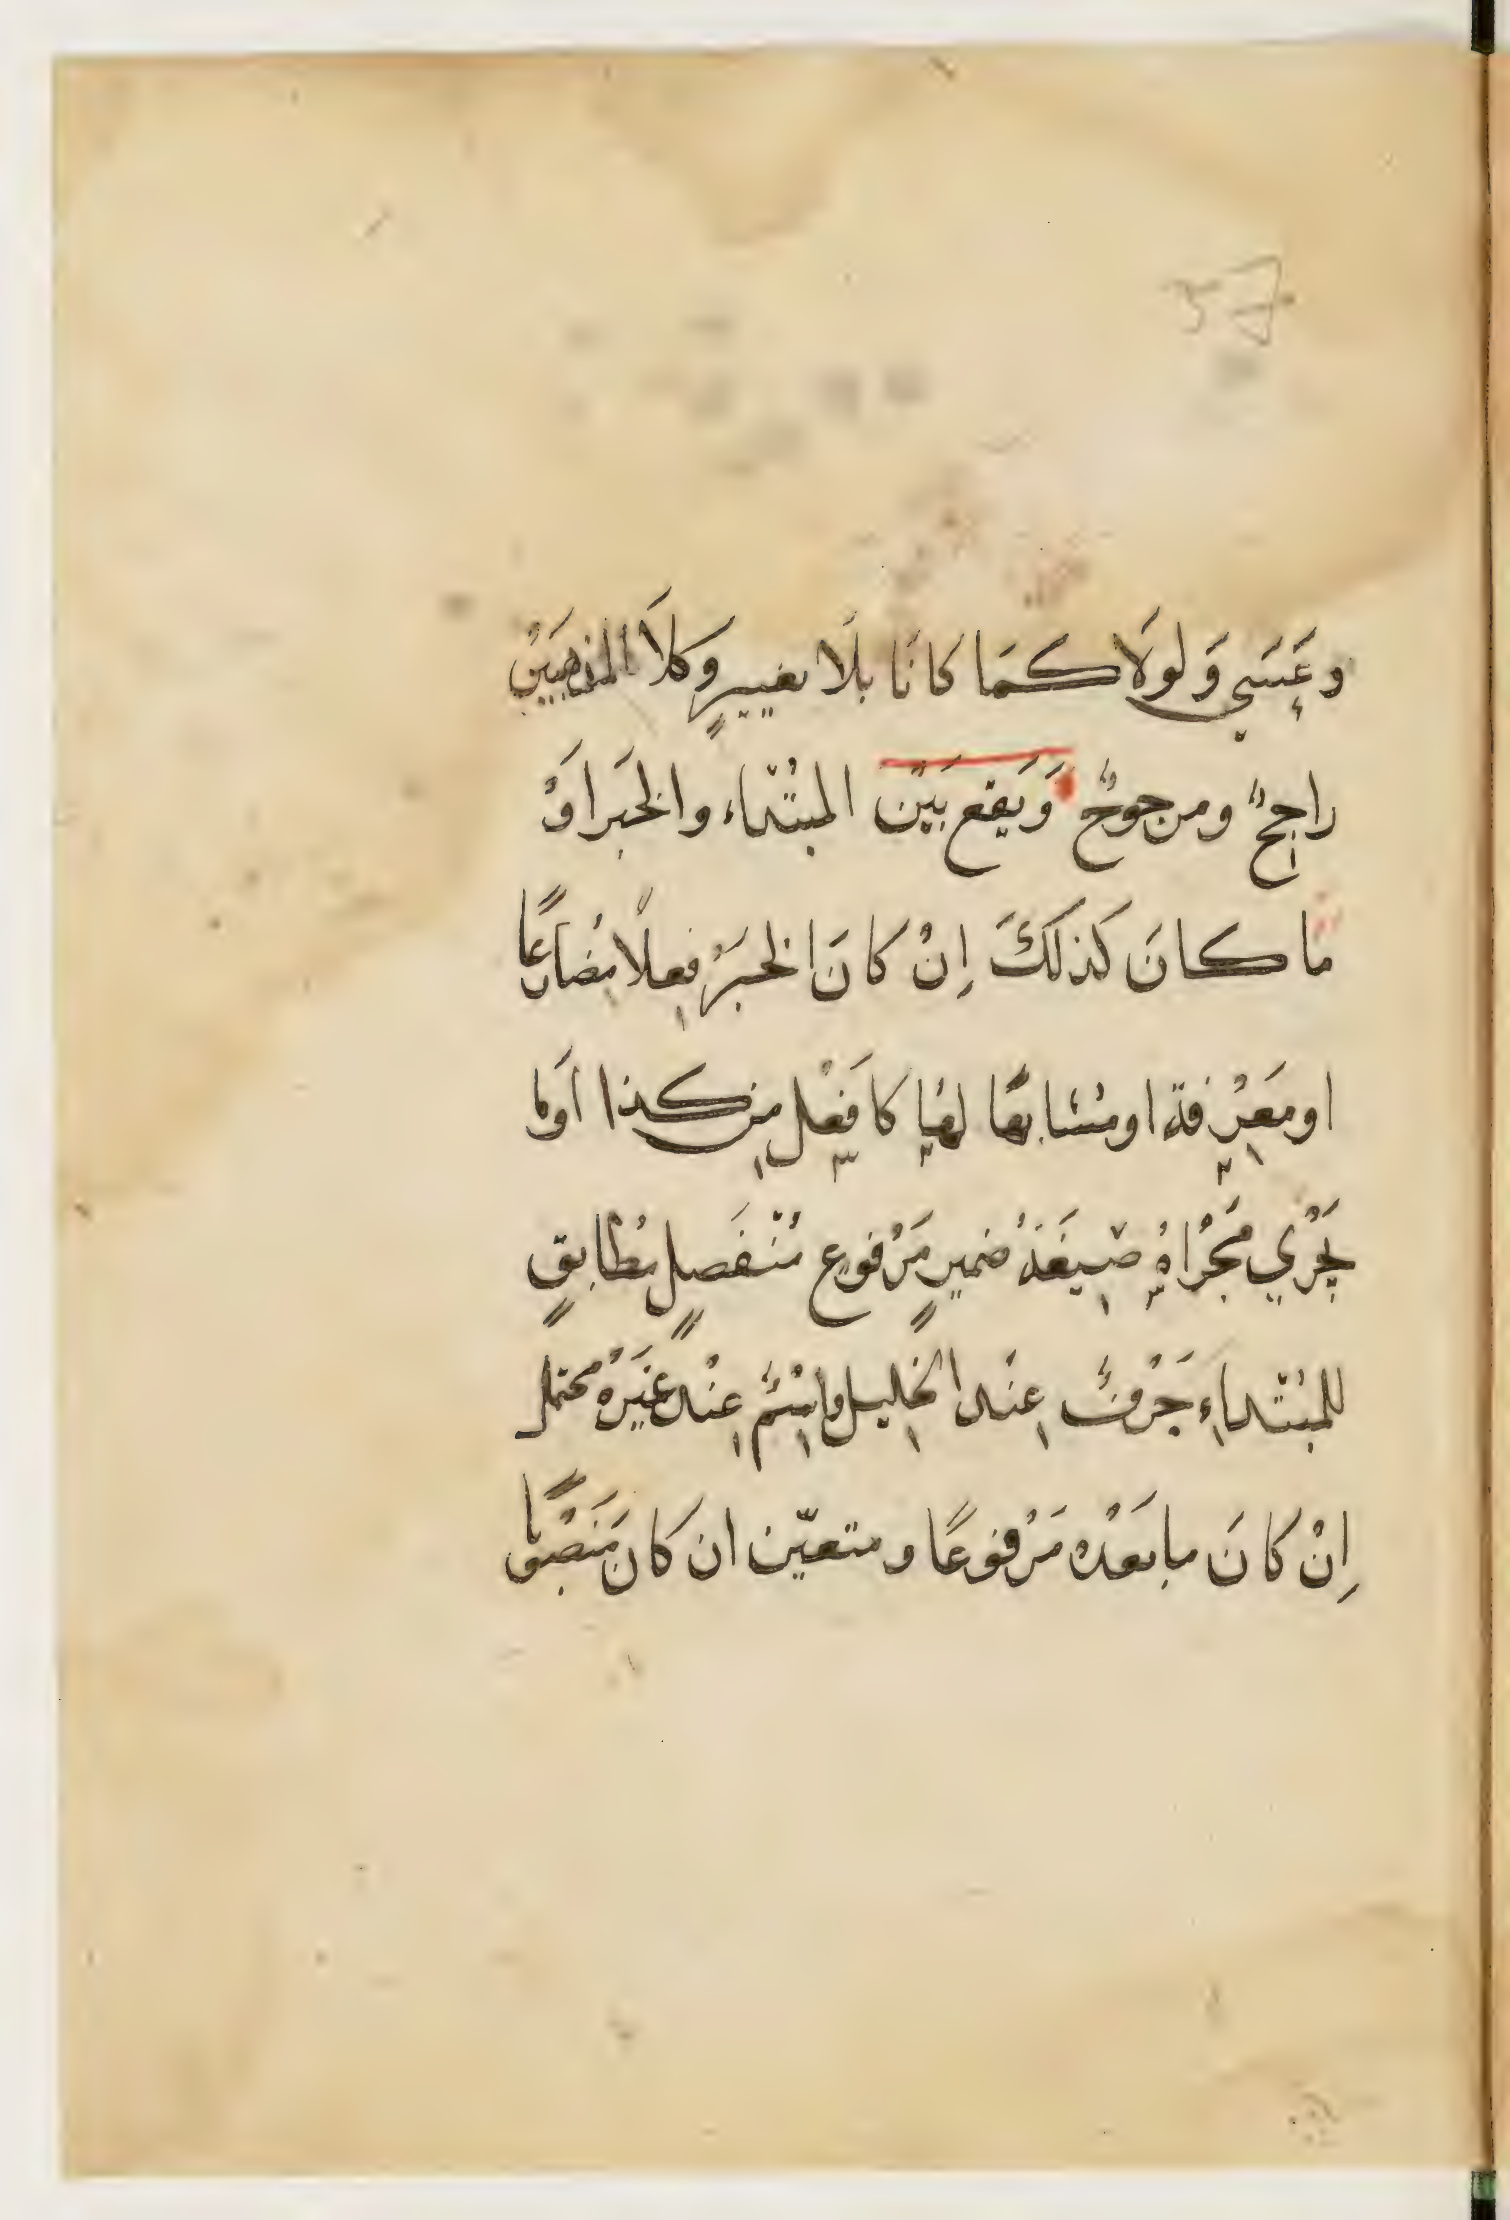 وعَسَي وَلولَا كمَا كانَا بلَا تغييرٍ وَكلَا المذهبَيْن
راجحٌ ومرجوحٌ وَيَقع بَيْن المبْتداء والخَبر اَوْ
ما كانَ كَذلكَ اِنْ كانَ الخبَرُ فِعلًا مُضارعًا
او مَعْرِفة او مُشابهًا لهَا كاَفْعل مِن كذا اَو لما
يَجْرِي مَجْراهُ صِيغَةُ ضميرٍ مَرْفوع مُنْفَصلٍ مُطابقٍ
للمبْتداءِ حَرْفٌ عِنْد الخليل واِسْمٌ عِنْد غَيْره محتمل
اِنْ كانَ ما بَعْدهُ مَرْفوعًا ومتعيّن ان كان مَنصْوبًا